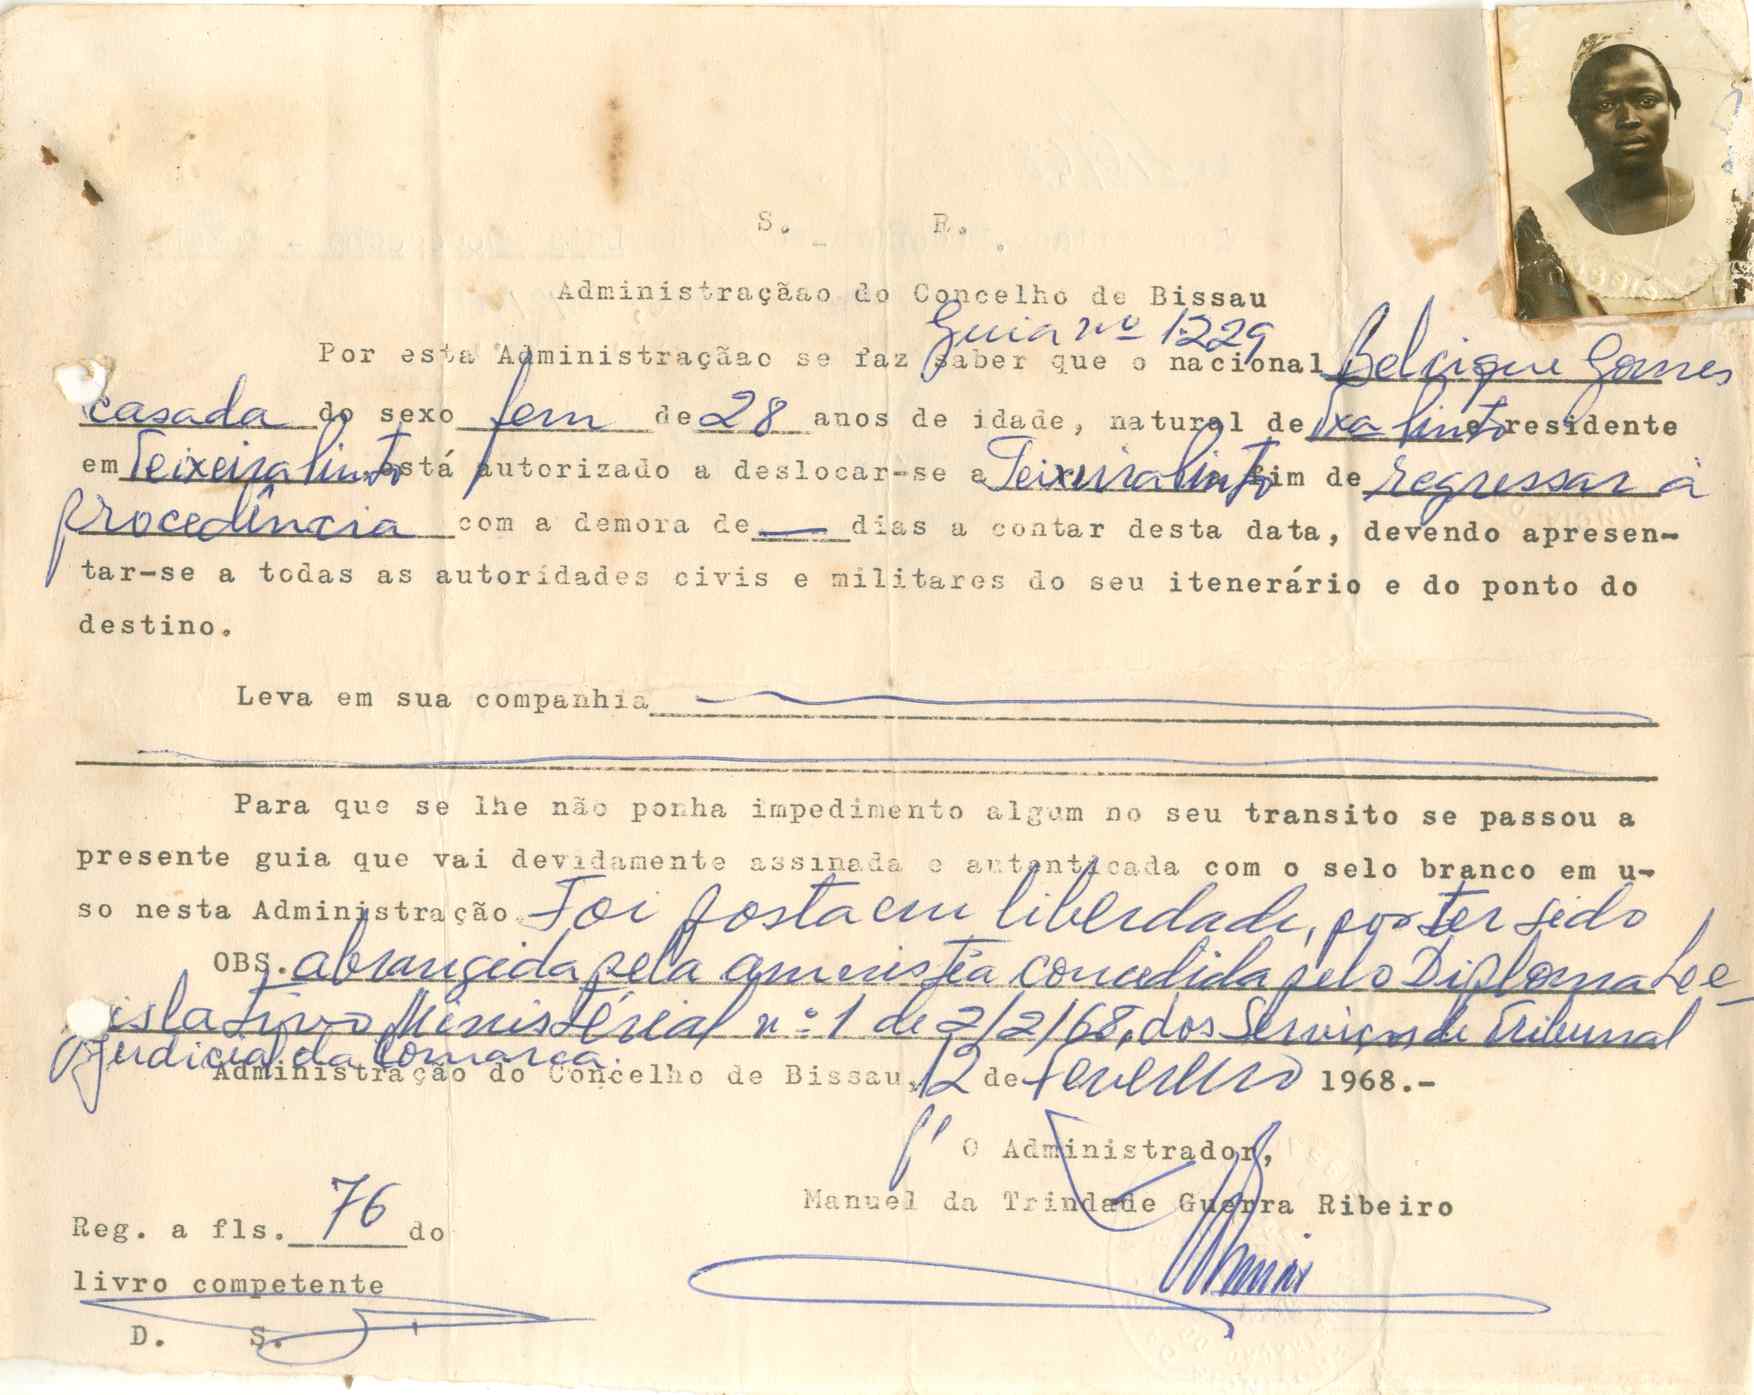 S. R.
Administraçãao do Concelho de Bissau
Guia nº 1229
Por esta Administraçãao se faz saber que o nacional Belcique Gomes
casada do sexo fem de 28 anos de idade, natural de Txa Pinto e residente
em Teixeira Pinto está autorizado a deslocar-se a Teixeira Pinto a fim de regressar à
procedência com a demora de — dias a contar desta data, devendo apresen-
tar-se a todas as autoridades civis e militares do seu itenerário e do ponto do
destino.
Leva em sua companhia
Para que se lhe não ponha impedimento algum no seu transito se passou a
presente guia que vai devidamente assinada e autenticada com o selo branco em u-
so nesta Administração. Foi posta em liberdade, por ter sido
OBS. abrangida pela amnistia concedida pelo Diploma Le-
gislativo Ministérial nº 1 de 2/2/68, dos Serviços de Tribunal
Judicial da Comarca.
Administração do Concelho de Bissau, 12 de Fevereiro 1968.-
Pl' O Administrador,
Manuel da Trindade Guerra Ribeiro
Reg. a fls. 76 do
livro competente
D. S.